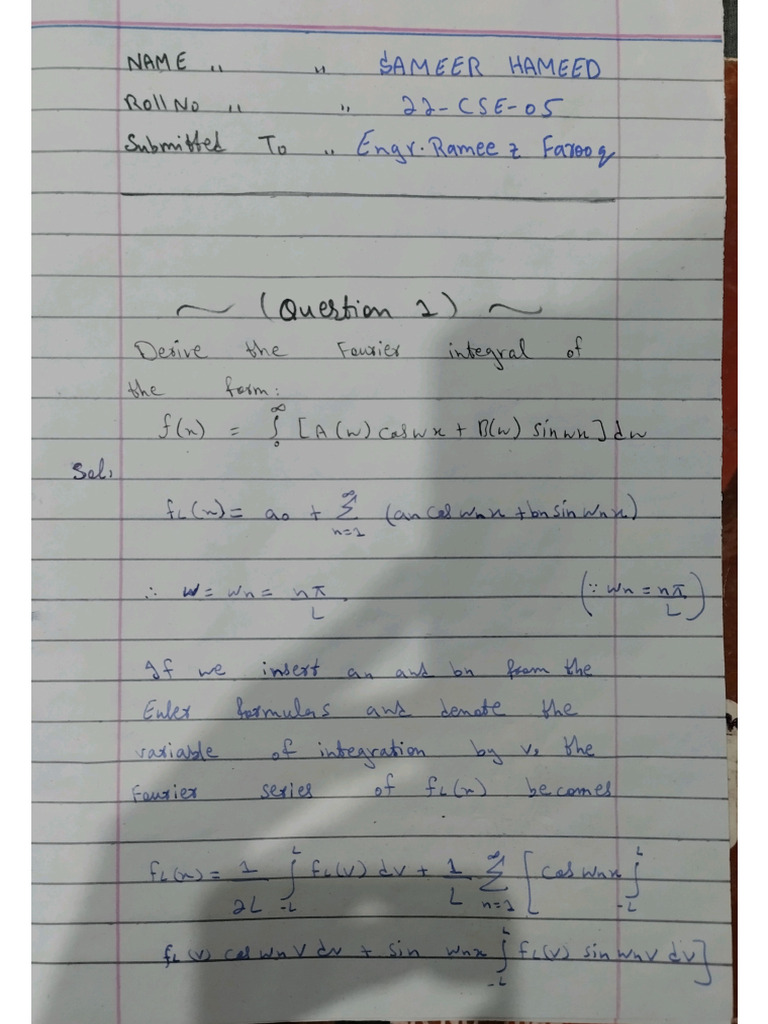 NAME " " SAMEER HAMEED
Roll No " " 22-CSE-05
Submitted To " Engr. Rameez Farooq
~ (Question 1) ~
Derive the Fourier integral of
the form:
f(x) = ∫₀^∞ [A(w) cos wx + B(w) sin wx] dw
Sol:
f_L(x) = a₀ + Σ_{n=1}^∞ (an cos wnx + bn sin wnx)
∴ w = wn = nπ/L. (∵ wn = nπ/L)
If we insert an and bn from the
Euler formulas and denote the
variable of integration by v, the
Fourier series of f_L(x) becomes
f_L(x) = 1/2L ∫_{-L}^{L} f_L(v) dv + 1/L Σ_{n=1}^∞ [cos wnx ∫_{-L}^{L}
f_L(v) cos wnv dv + sin wnx ∫_{-L}^{L} f_L(v) sin wnv dv]